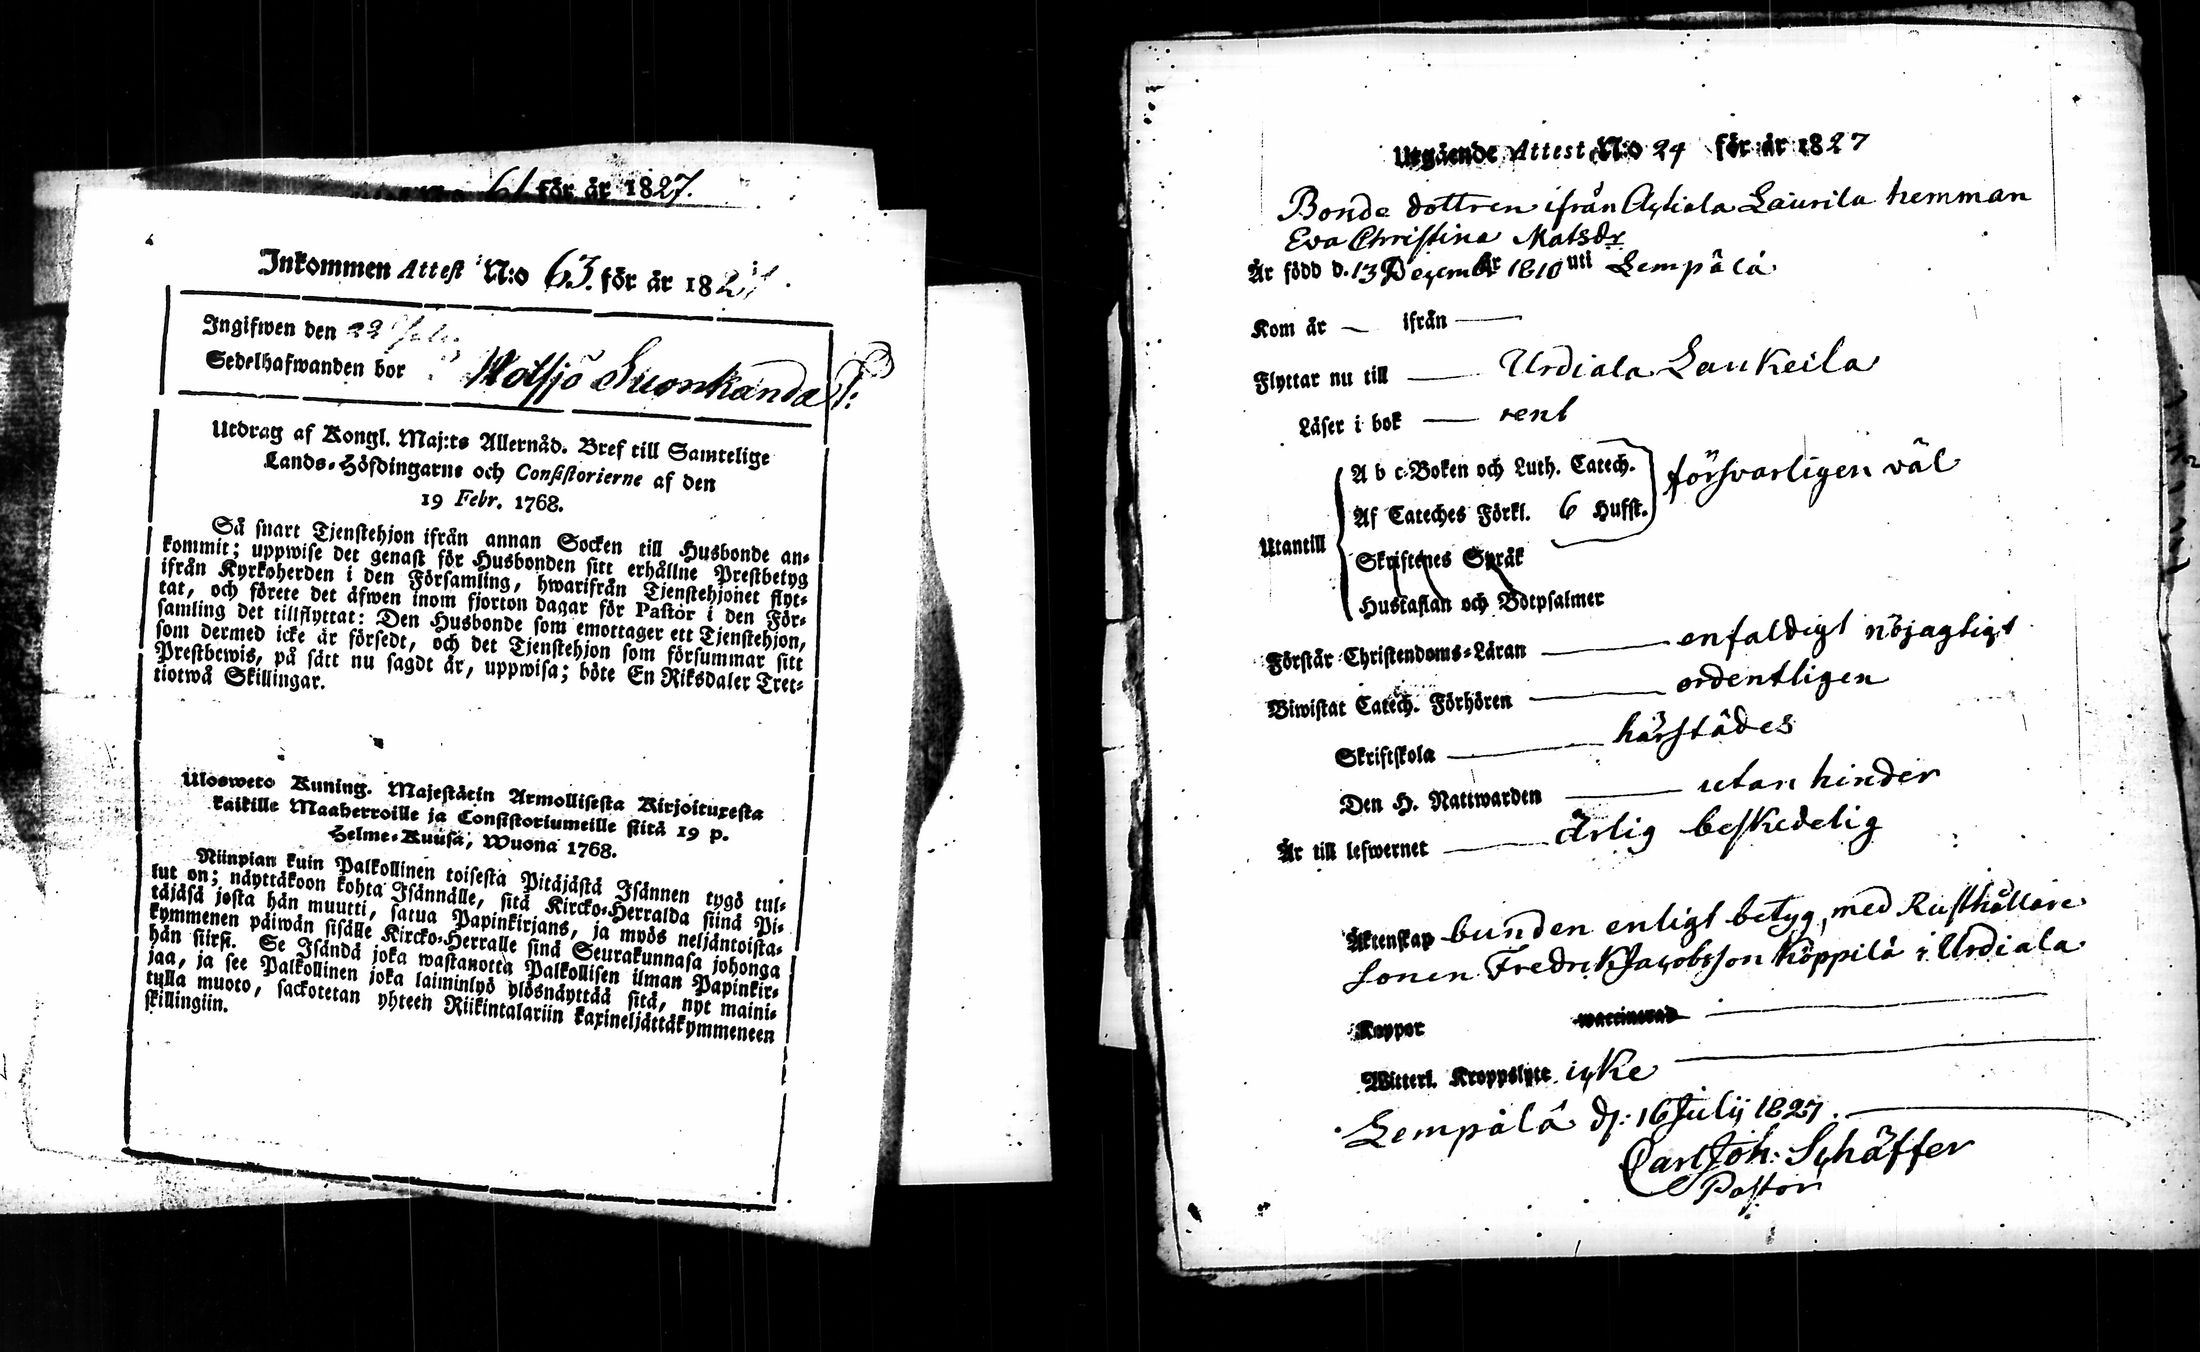 61 för år 1827.
Inkommen Attest N:o 63. för år 1827.
Ingifwen den 22 July
Sedelhafwanden bor
Utdrag af Kongl. Maj:ts Allernåd. Bref till Samtelige
Lands-Höfdingarne och Consistorierne af den
19 Febr. 1768.
Så snart Tjenstehjon ifrån annan Socken till Husbonde an-
kommit; uppwise det genast för Husbonden sitt erhållne Prestbetyg
ifrån Kyrkoherden i den Församling, hwarifrån Tjenstehjonet flyt-
tat, och förete det äfwen inom fjorton dagar för Pastor i den För-
samling det tillflyttat: Den Husbonde som emottager ett Tjenstehjon,
som dermed icke är försedt, och det Tjenstehjon som försummar sitt
Prestbewis, på sätt nu sagdt är, uppwisa; böte En Riksdaler Tret-
tiotwå Skillingar.
Ulosweto Kuning. Majestätin Armollisesta Kirjoituxesta
kaikille Maaherroille ja Consistoriumeille siitä 19 p.
Helme-Kuusa, Wuona 1768.
Niinpian kuin Palkollinen toisesta Pitäjästä Isännen tygö tul-
lut on; näyttäkoon kohta Isännälle, sitä Kircko-Herralda siinä Pi-
täjäsä josta hän muutti, satua Papinkirjans, ja myös neljäntoista-
kymmenen päiwän sisälle Kircko-Herralle sinä Seurakunnasa johonga
hän siirsi. Se Isändä joka wastanotta Palkollisen ilman Papinkir-
jaa, ja see Palkollinen joka laiminlyö ylösnäyttää sitä, nyt maini-
tulla muoto, sackotetan yhteen Riikintalariin kaxineljättäkymmeneen
skillingiin.
Utgående Attest N:o 24 för år 1827
Bonde dottren ifrån Laurila hemman
Eva Christina Matsdr
Är född d. 13 Decembr 1810 uti Lempälä
Kom år — ifrån —
Flyttar nu till — Urdiala Laukeila
Läser i bok — rent
A b c-Boken och Luth. Catech.
försvarligen väl
Af Cateches Förkl. 6 Hufst.
Utantill
Skriftenes Språk
Hustaflan och Botpsalmer
Förstår Christendoms-Läran — enfaldigt nöjagtigt
Biwistat Catech. Förhören — ordentligen
Skriftskola — härstädes
Den H. Nattwarden — utan hinder
Är till lefwernet — ärlig beskedelig
Äktenskap bunden enligt betyg, med Rusthållare
sonen Fredrik Jacobsson Köppilä i Urdiala
Koppor waccinerad —
Witterl. Kroppslyte icke —
Lempälä d: 16 Julij 1827.
Carl Joh: Schäffer
Pastor